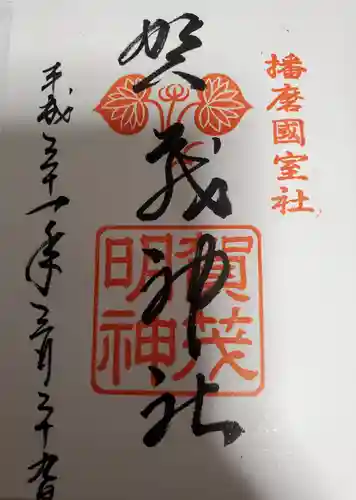 播磨國室社
賀茂神社
賀茂
明神
平成三十一年三月三十日